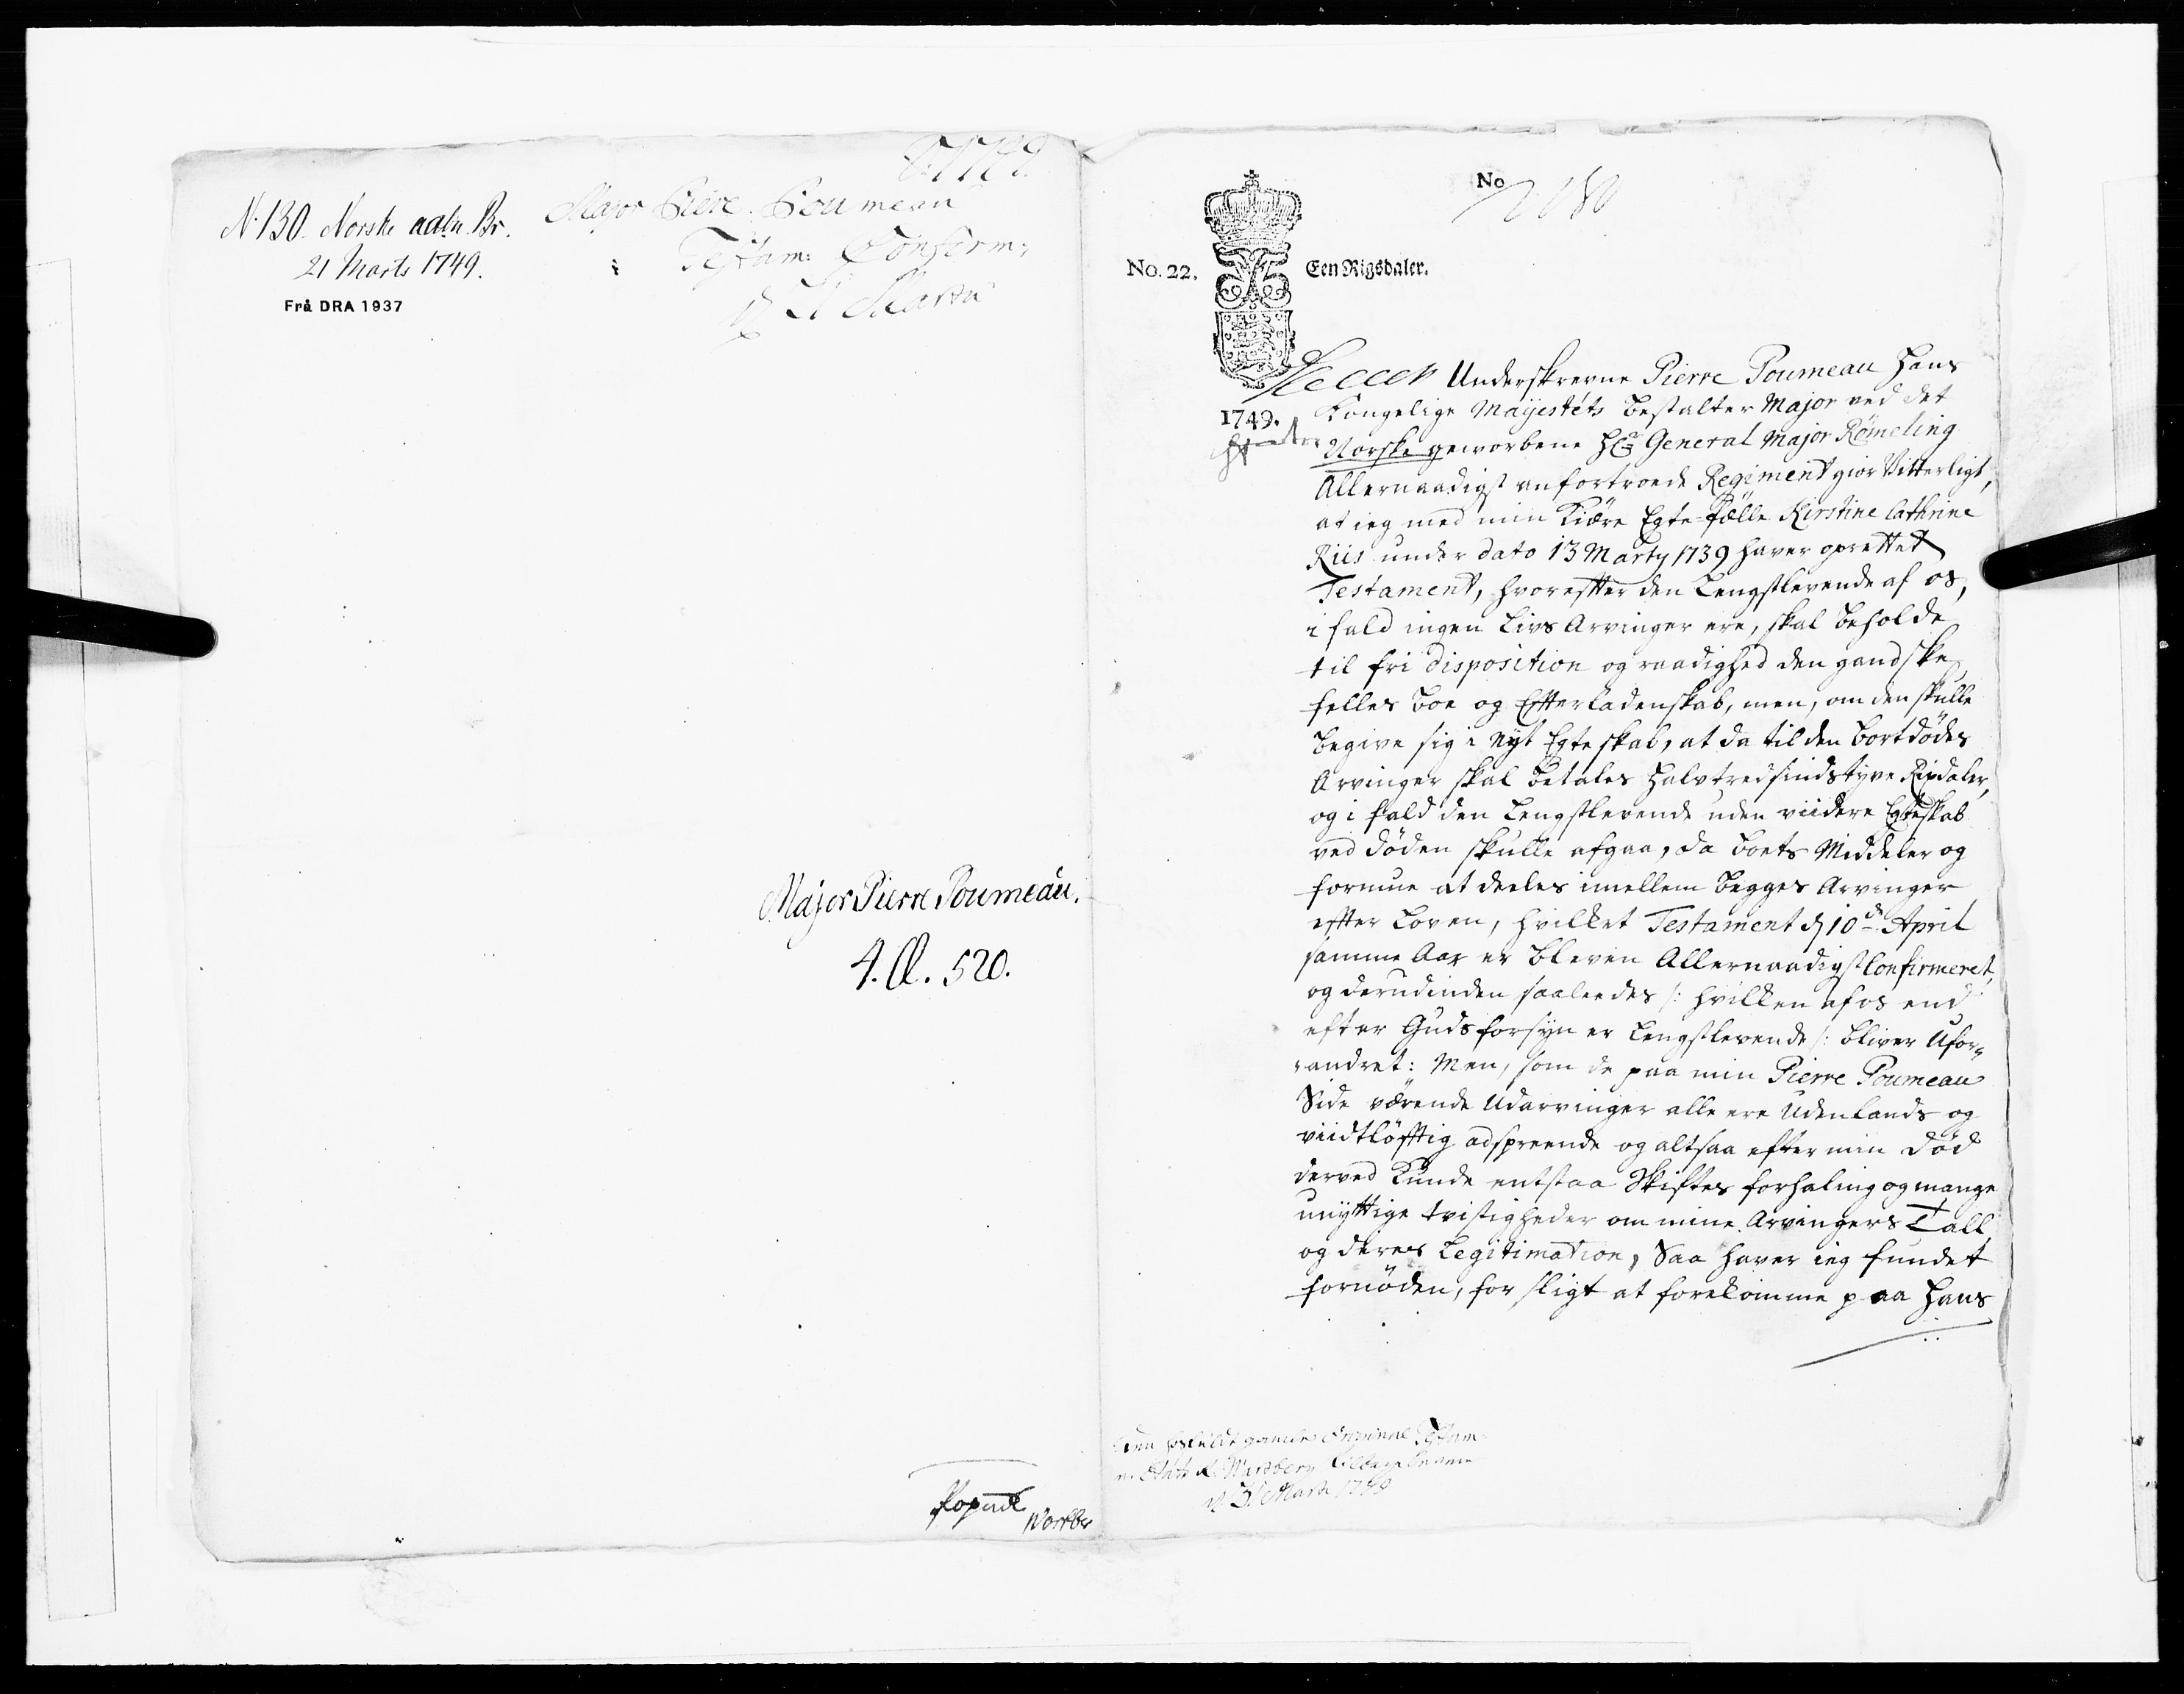 N. 130. Norske aabn. Br.
21 Marts 1749.
Frå DRA 1937
Major Piere Poumeau
Testam: Confirm:
Major Pierre Poumeau.
4. Cl. 520.
Kopiert
No
No. 22.
Een Rigsdaler.
1749.
Underskrevne Pierre Poumeau Hans
Kongelige Mayestéts bestalter Major ved det
Norske geworbene Hr General Major Römeling
Allernaadigst anfortroede Regiment giör Vitterligt,
at ieg med min Kiære Egte-fælle Kirstine Cathrine
Riis under dato 13 Marty 1739 haver oprettet
Testament, hvorefter den Lengstlevende af os,
i fald ingen Livs Arvinger ere, skal beholde
til fri disposition og raadighed den gandske
felles boe og Efterladenskab, men, om den skulle
begive sig i Nyt Egteskab, at da til den bortdödes
Arvinger skal betales halvtredsindstyve Rixdaler,
og i fald den Lengstlevende uden viidere Egteskab
ved döden skulle afgaa, da boets Middeler og
formue at deeles imellem begges Arvinger
efter Loven, hvilket Testament d 10de April
samme Aar er bleven Allernaadigst Confirmeret,
og derudinden saaledes /: hvilken af os end
efter Guds forsyn er Lengstlevende :/ bliver Ufor„
„andret: Men, som de paa min Pierre Poumeau
Side værende Udarvinger alle ere Udenlands og
viidtlöftig adspreede og altsaa efter min död
derved kunde entstaa Skiftes forhaling og mange
unyttige tvistigheder om mine Arvingers Tall
og deres Legitimation, Saa haver ieg fundet
fornöden, for sligt at forekomme paa Hans